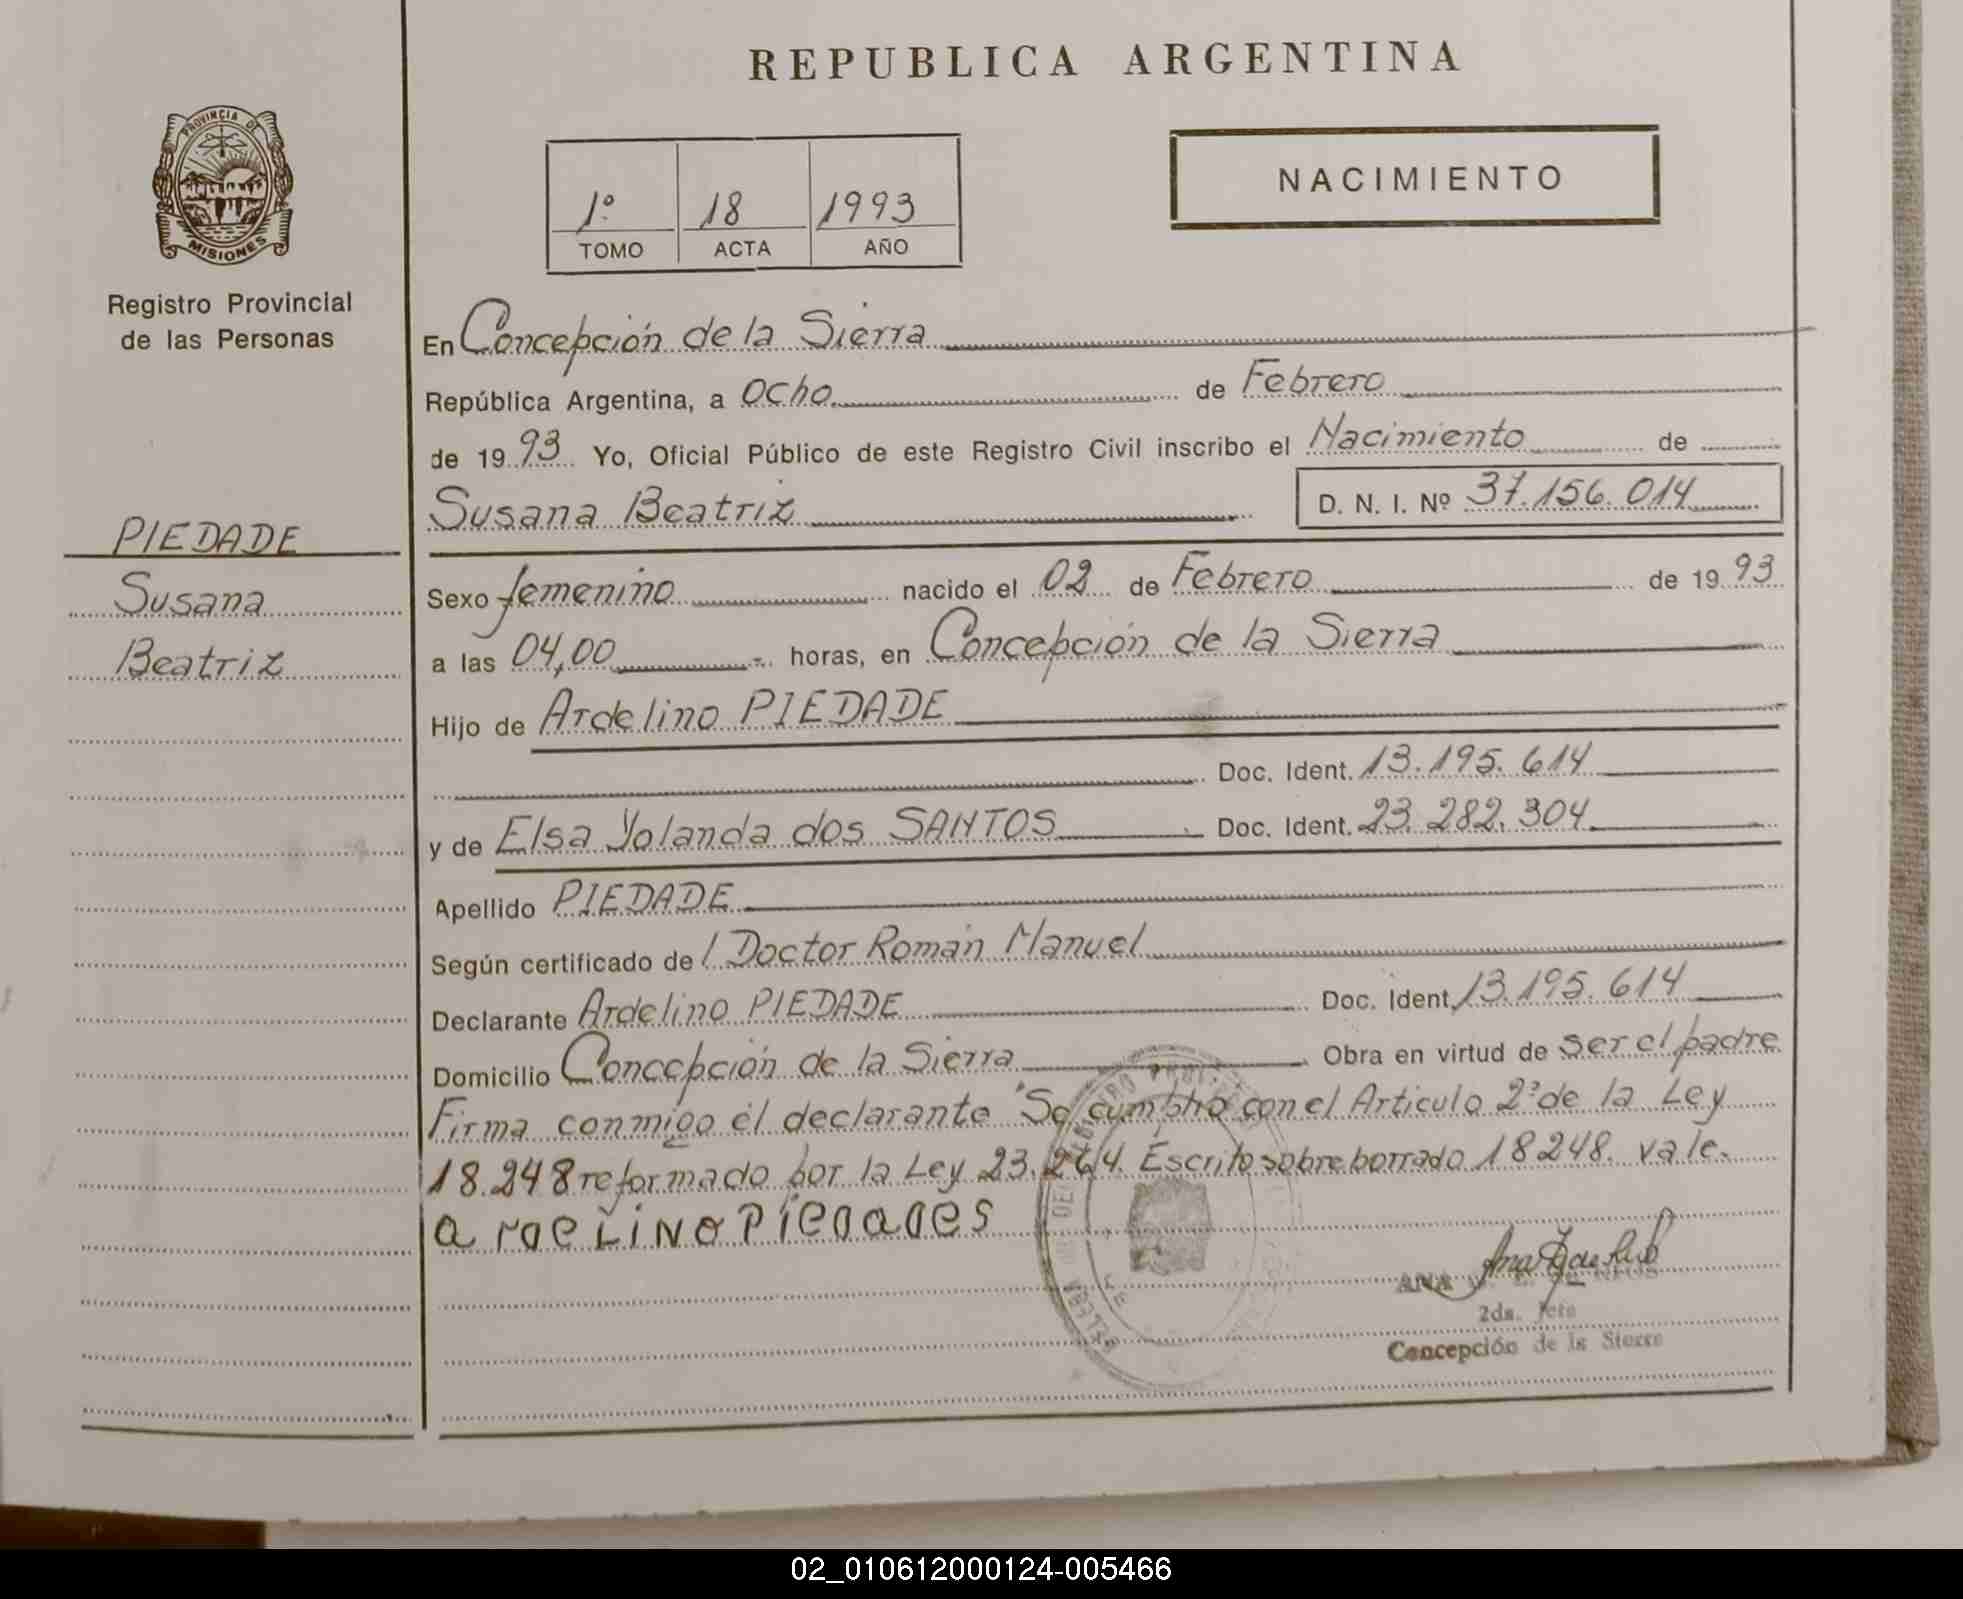 REPUBLICA ARGENTINA
PROVINCIA DE
MISIONES
Registro Provincial
de las Personas
1º 18 1993
TOMO ACTA AÑO
NACIMIENTO
En Concepción de la Sierra
República Argentina, a ocho de Febrero
de 1993 Yo, Oficial Público de este Registro Civil inscribo el Nacimiento de
Susana Beatriz D. N. I. Nº 37.156.014
PIEDADE
Susana
Beatriz
Sexo femenino nacido el 02 de Febrero de 1993
a las 04,00 horas, en Concepción de la Sierra
Hijo de Ardelino PIEDADE
Doc. Ident. 13.195.614
y de Elsa Yolanda dos SANTOS Doc. Ident. 23.282.304
Apellido PIEDADE
Según certificado del Doctor Román Manuel
Declarante Ardelino PIEDADE Doc. Ident. 13.195.614
Domicilio Concepción de la Sierra Obra en virtud de ser el padre
Firma conmigo el declarante "Se cumplió con el Articulo 2º de la Ley
18.248 reformado por la Ley 23.264. Escrito sobre borrado 18248. vale.
ardeLiNo PiedadeS
ANA
2da. Jefe
Concepción de la Sierra
02_010612000124-005466